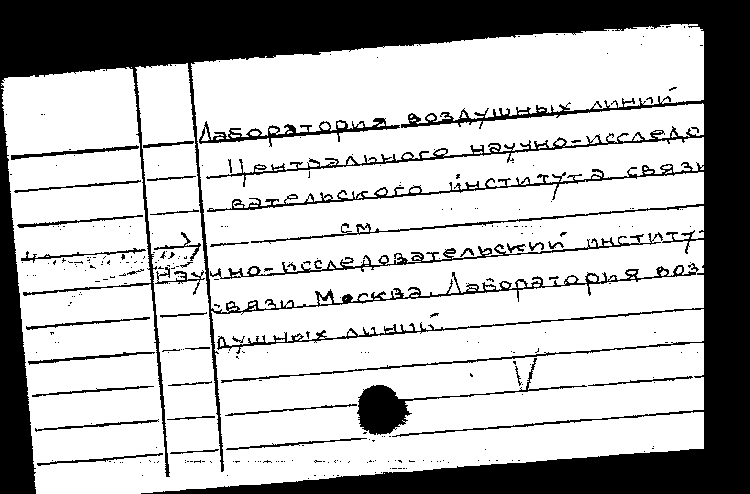 Лаборатория воздушных линий
Центрального научно-исследо
вательского института связи
см.
Научно-исследовательский институт
связи. Москва. Лаборатория воз-
душных линий.
V